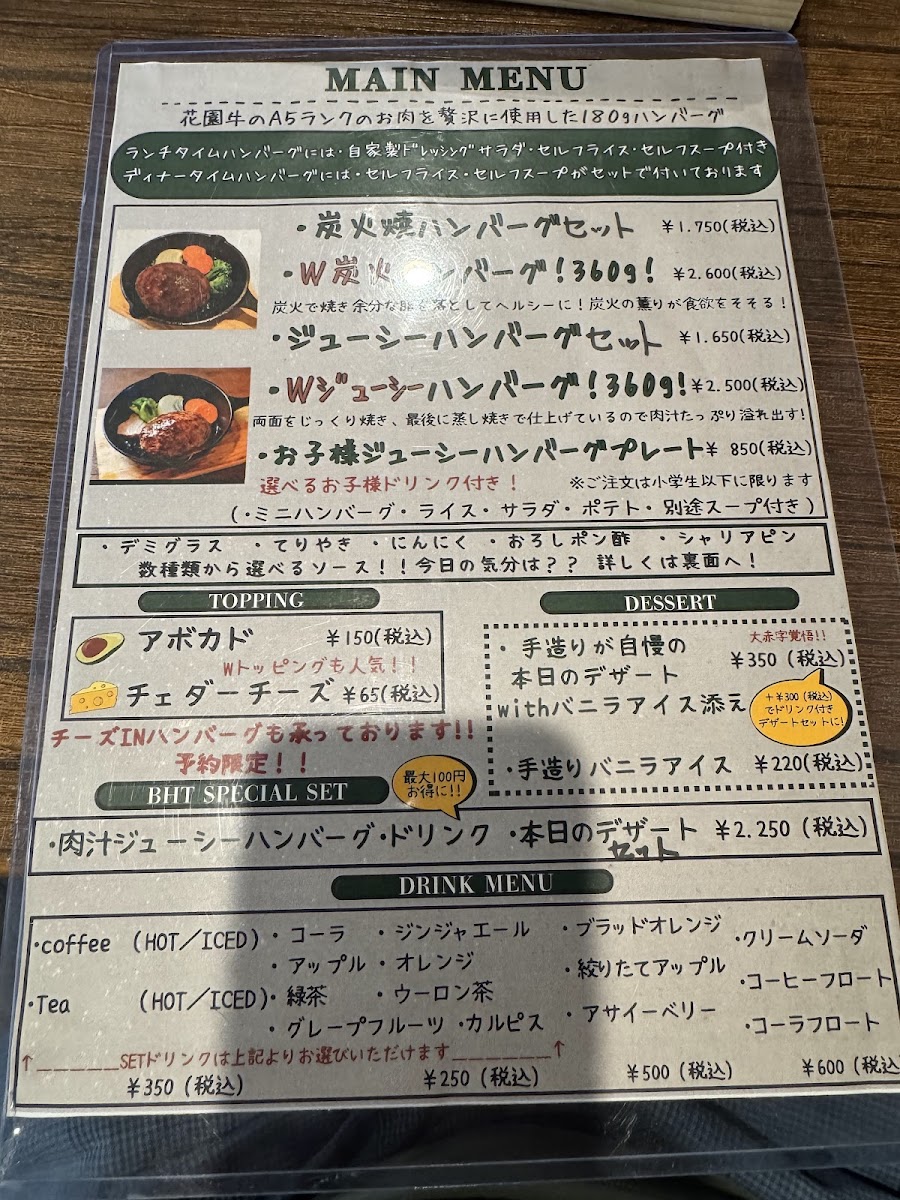 MAIN MENU
花園牛のA5ランクのお肉を贅沢に使用した180gハンバーグ
ランチタイムハンバーグには・自家製ドレッシングサラダ・セルフライス・セルフスープ付き
ディナータイムハンバーグには・セルフライス・セルフスープがセットで付いております
・炭火焼ハンバーグセット ¥1.750(税込)
・W炭火 ンバーグ!360g! ¥2.600(税込)
炭火で焼き余分な脂を落としてヘルシーに!炭火の薫りが食欲をそそる!
・ジューシーハンバーグセット ¥1.650(税込)
・Wジューシーハンバーグ!360g! ¥2.500(税込)
両面をじっくり焼き、最後に蒸し焼きで仕上げているので肉汁たっぷり溢れ出す!
・お子様ジューシーハンバーグプレート ¥ 850(税込)
選べるお子様ドリンク付き! ※ご注文は小学生以下に限ります
(・ミニハンバーグ・ライス・サラダ・ポテト・別途スープ付き)
・デミグラス ・てりやき ・にんにく ・おろしポン酢 ・シャリアピン
数種類から選べるソース!!今日の気分は?? 詳しくは裏面へ!
TOPPING
アボカド ¥150(税込)
Wトッピングも人気!!
チェダーチーズ ¥65(税込)
チーズINハンバーグも承っております!!
予約限定!!
DESSERT
・手造りが自慢の
本日のデザート
withバニラアイス添え
大赤字覚悟!!
¥350 (税込)
+¥300(税込)
でドリンク付き
デザートセットに!
・手造りバニラアイス ¥220(税込)
BHT SPECIAL SET
最大100円
お得に!!
・肉汁ジューシーハンバーグ・ドリンク ・本日のデザート ¥2.250 (税込)
セット
DRINK MENU
・coffee (HOT/ICED)
・Tea (HOT/ICED)
・コーラ ・ジンジャエール
・アップル ・オレンジ
・緑茶 ・ウーロン茶
・グレープフルーツ ・カルピス
・ブラッドオレンジ
・絞りたてアップル
・アサイーベリー
・クリームソーダ
・コーヒーフロート
・コーラフロート
↑_____SETドリンクは上記よりお選びいただけます______↑
¥350 (税込) ¥250 (税込) ¥500 (税込) ¥600 (税込